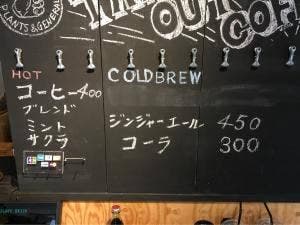 PLANTS & GENERAL
TAKE OUT COF
HOT
コーヒー400
ブレンド
ミント
サクラ
COLDBREW
ジンジャーエール 450
コーラ 300